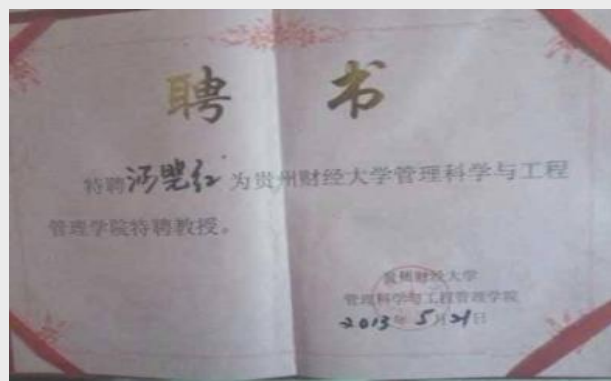 聘 书
特聘 为贵州财经大学管理科学与工程
管理学院特聘教授。
贵州财经大学
管理科学与工程管理学院
2013年5月21日